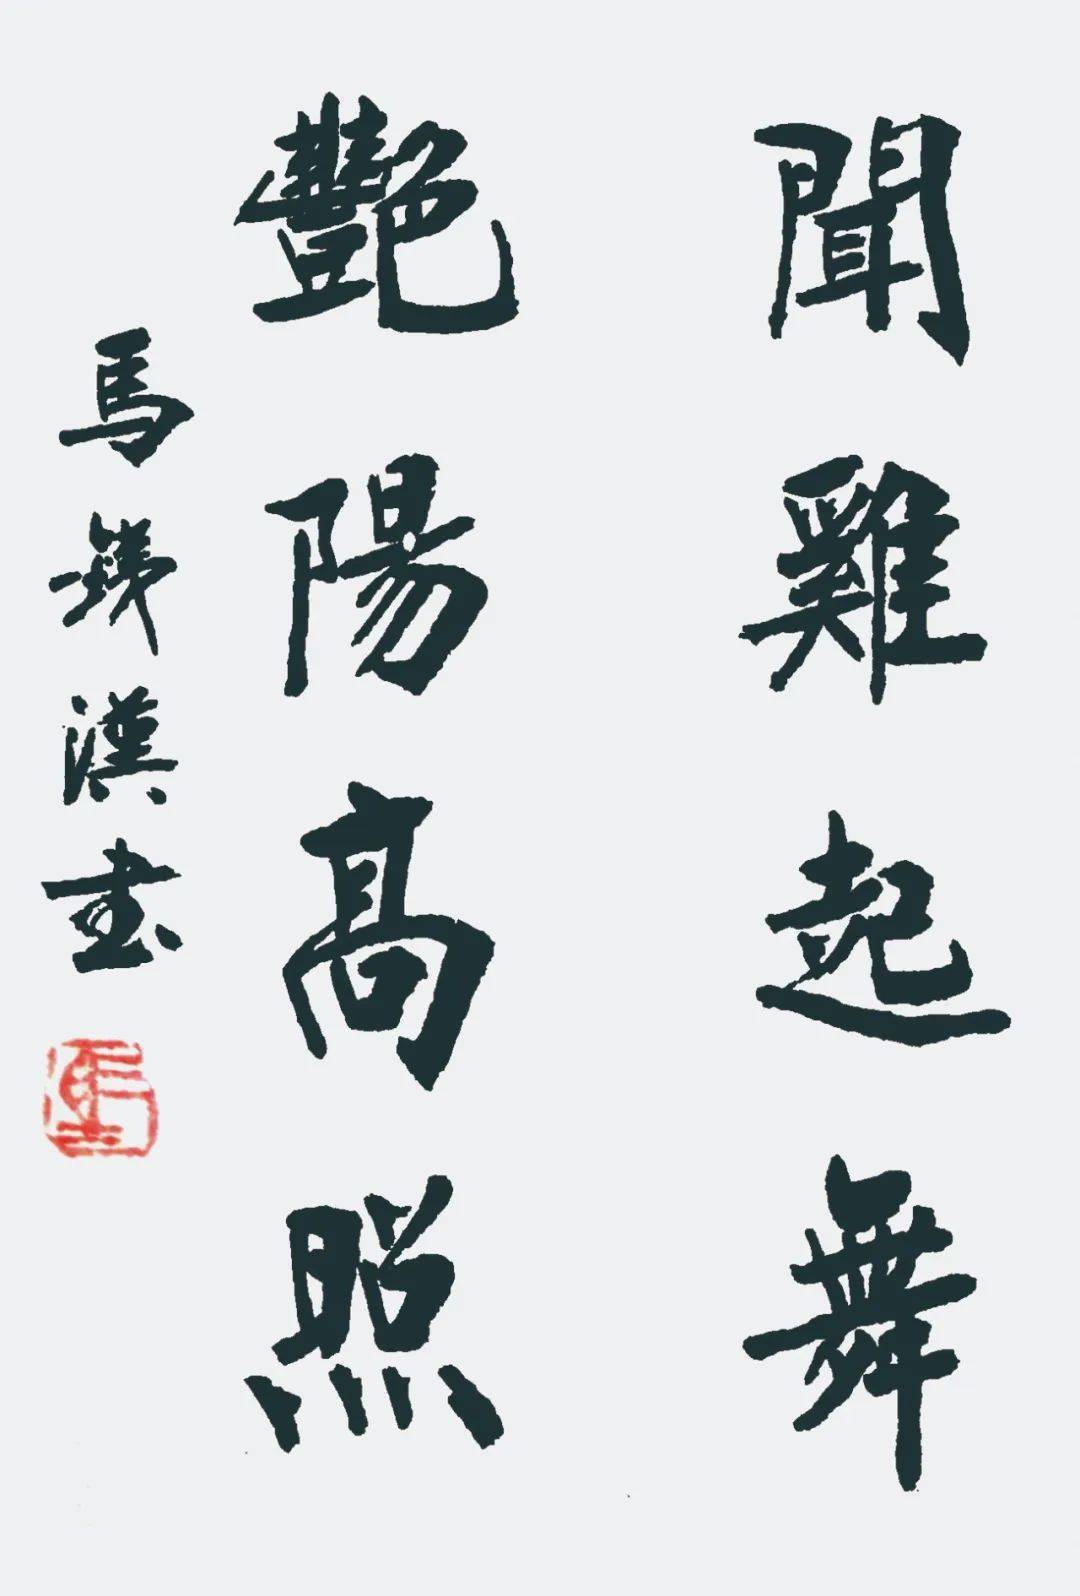 聞雞起舞
艷陽高照
馬銕漢書